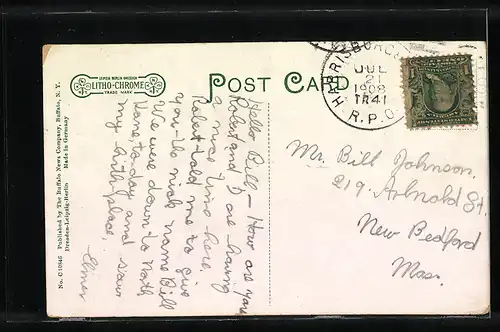 LEIPZIG BERLIN DRESDEN
LITHO-CHROME
TRADE MARK
POST CARD
HARRISBURG
JUL
21
1908
TR41
R.P.O.
Hello Bill - How are you
Robert and I are having
a nice time here.
Robert told me to give
you the nick name Bill
We were down to North
Kane to-day and saw
my birthplace.
Elmer
Mr. Bill Johnson.
219. Arlnold St.
New Bedford
Mass.
No. C 10845 Published by The Buffalo News Company, Buffalo, N. Y.
Dresden-Leipzig-Berlin Made in Germany